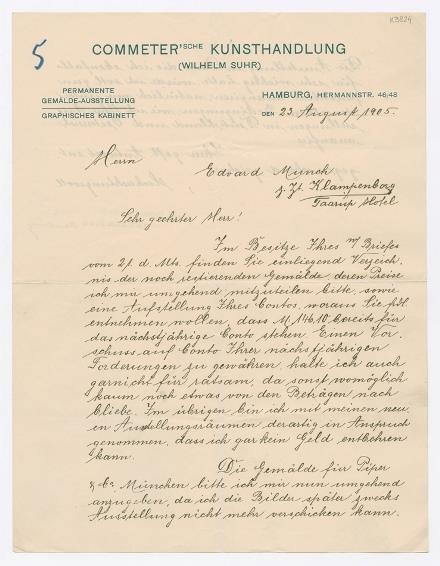 K3824
5
COMMETER'SCHE KUNSTHANDLUNG
(WILHELM SUHR)
PERMANENTE
GEMÄLDE-AUSSTELLUNG
GRAPHISCHES KABINETT
HAMBURG, HERMANNSTR. 46/48
DEN 23. August 1905.
Herrn
Edvard Munch
z. Zt. Klampenborg
Taarup Hotel
Sehr geehrter Herr!
Im Besitze Ihres w/ Briefes
vom 21. d. Mts. finden Sie einliegend Verzeich,
nis der noch restierenden Gemälde, deren Preise
ich mir umgehend mitzuteilen bitte, sowie
eine Aufstellung Ihres Contos, woraus Sie gfl.
entnehmen wollen, dass M 146.10 bereits für
das nächstjährige Conto stehen. Einen Vor,
schuss auf Conto Ihrer nächstjährigen
Forderungen zu gewähren, halte ich auch
garnicht für ratsam, da sonst womöglich
kaum noch etwas von den Beträgen nach
bliebe. Im übrigen bin ich mit meinen neu,
en Ausstellungsräumen derartig in Anspruch
genommen, dass ich gar kein Geld entbehren
kann.
Die Gemälde für Piper
& Co. München bitte ich mir nun umgehend
anzugeben, da ich die Bilder später zwecks
Ausstellung nicht mehr verschicken kann.